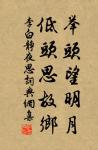 举头望明月
低头思故乡
李白静夜思词典网集